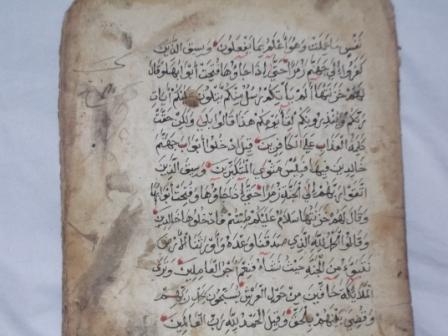 نفس ما عملت وهو أعلم بما يفعلون وسيق الذين
كفروا إلى جهنم زمرا حتى إذا جاؤها فتحت أبوابها وقال
لهم خزنتها ألم يأتكم رسل منكم يتلون عليكم آيات
ربكم وينذرونكم لقاء يومكم هذا قالوا بلى ولكن حقت
كلمة العذاب على الكافرين قيل ادخلوا أبواب جهنم
خالدين فيها فبئس مثوى المتكبرين وسيق الذين
اتقوا ربهم إلى الجنة زمرا حتى إذا جاؤها وفتحت أبوابها
وقال لهم خزنتها سلام عليكم طبتم فادخلوها خالدين
وقالوا الحمد لله الذي صدقنا وعده وأورثنا الأرض
نتبوأ من الجنة حيث نشاء فنعم أجر العاملين وترى
الملائكة حافين من حول العرش يسبحون بحمد ربهم
وقضي بينهم بالحق وقيل الحمد لله رب العالمين